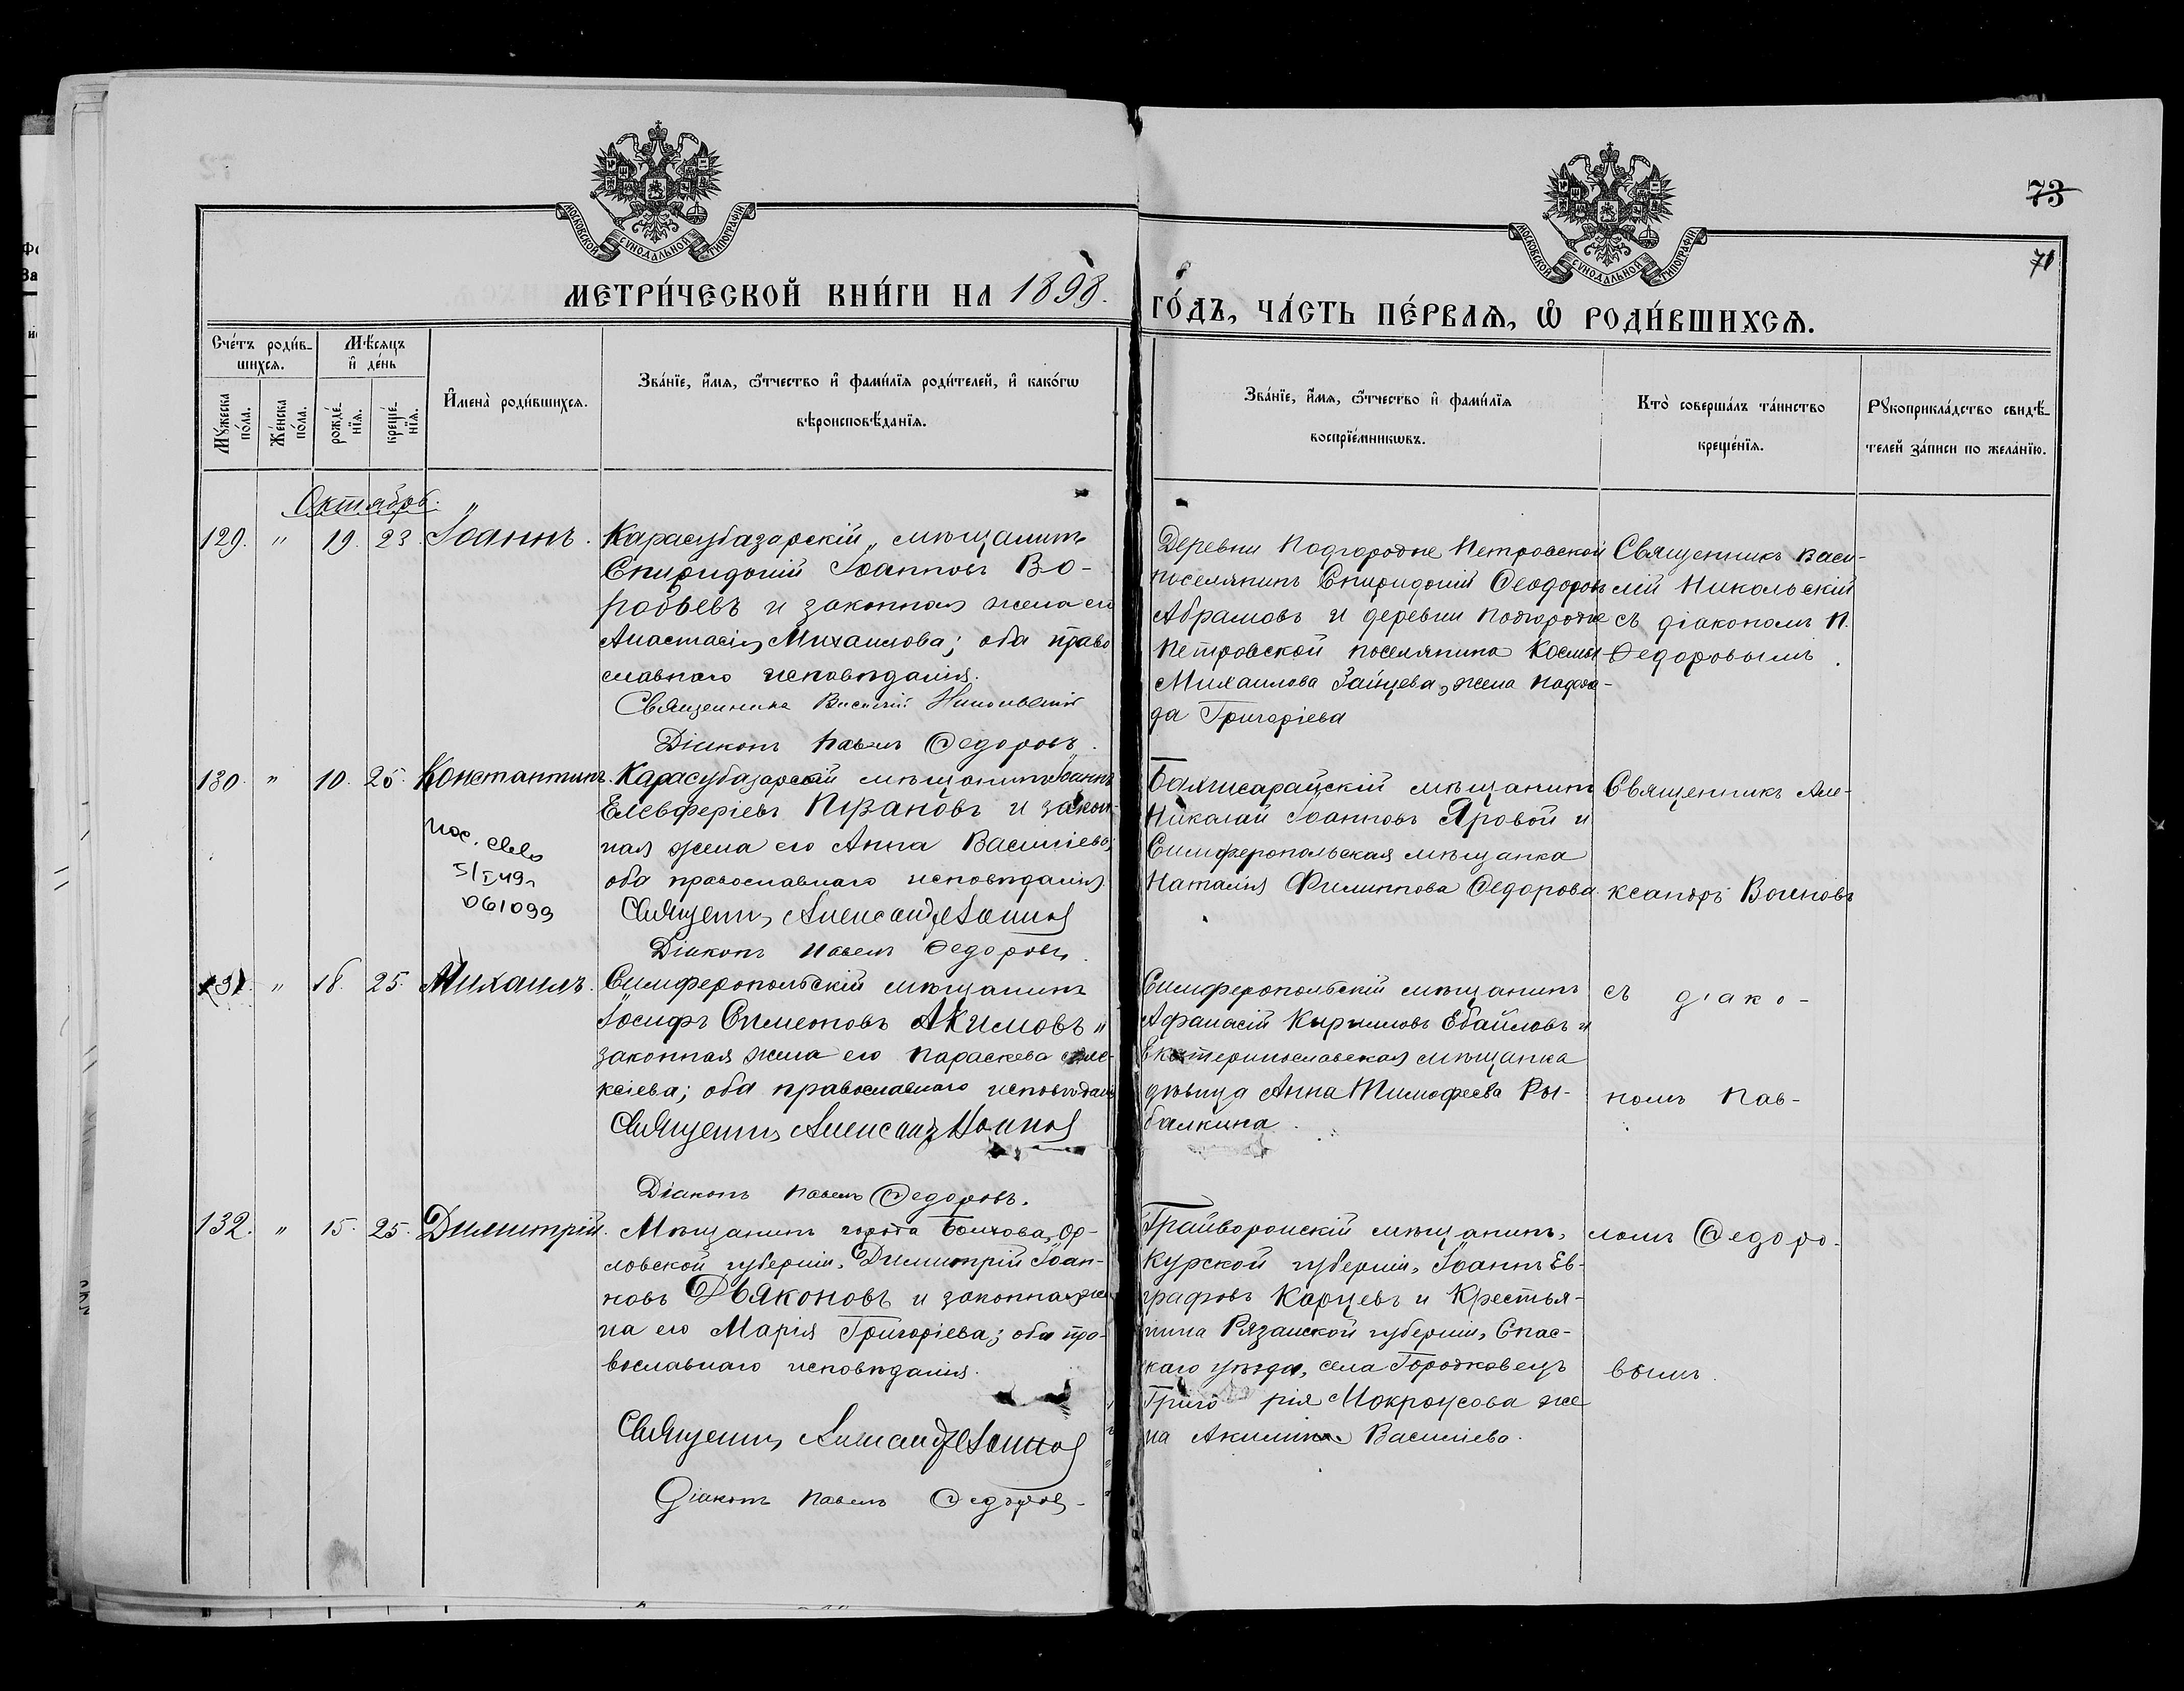 73
71
МОСКОВСКОЙ СѴНОДАЛЬНОЙ ТИПОГРАФІИ
МОСКОВСКОЙ СѴНОДАЛЬНОЙ ТИПОГРАФІИ
МЕТРИ́ЧЕСКОЙ КНИ́ГИ НА 1898.
ГО́ДЪ, ЧА́СТЬ ПЕ́РВАѦ, Ѡ҆ РОДИ́ВШИХСѦ.
Сче́тъ роди́в-
шихсѧ.
Мꙋ́жеска
по́ла.
Же́нска
по́ла.
Мѣ́сѧцъ
и҆ де́нь
рожде́-
нїѧ.
креще́-
нїѧ.
И҆мена̀ роди́вшихсѧ.
Зва́нїе, и҆́мѧ, ѻ҆́тчество и҆ фами́лїѧ роди́телей, и҆ како́гѡ
вѣроисповѣ́данїѧ.
Зва́нїе, и҆́мѧ, ѻ҆́тчество и҆ фами́лїѧ
воспрїе́мникѡвъ.
Кто̀ соверша́лъ та́инство
креще́нїѧ.
Рꙋкоприкла́дство свидѣ́-
телей за́писи по жела́нїю.
Октябрь.
129. " 19. 23. Іоаннъ.
Карасубазарскій мѣщанинъ
Спиридоній Іоанновъ Во-
робьевъ и законная жена его
Анастасія Михаилова; оба право
славнаго исповѣданія.
Священникъ Василій Никольскій
Діаконъ Павелъ Ѳедоровъ.
Деревни Подгородне Петровской
поселянинъ Спиридоній Ѳеодоровъ
Абрамовъ и деревни Подгородне
Петровской поселянина Космы
Михаилова Зайцева, жена
да Григоріева
Священникъ Васи-
лій Никольскій
съ діакономъ П.
Ѳедоровымъ.
130. " 10. 25. Константинъ.
5/I 49г
061099
Карасубазарскій мѣщанинъ Іоаннъ
Елевферіевъ и закон-
ная жена его Анна Василіева,
оба православнаго исповѣданія.
Священникъ Александръ Воиновъ
Діаконъ Павелъ Ѳедоровъ.
Бахчисарайскій мѣщанинъ
Николай Іоанновъ Яровой и
Симферопольская мѣщанка
Наталія Филиппова Ѳедорова.
Священникъ Але-
ксандръ Воиновъ
131. " 18. 25. Михаилъ.
Симферопольскій мѣщанинъ
Іосифъ Симеоновъ Акимовъ и
законная жена его Параскева Але-
ксіева; оба православнаго исповѣданія
Священникъ Александръ Воиновъ
Діаконъ Павелъ Ѳедоровъ.
Симферопольскій мѣщанинъ
Аѳанасій Кирилловъ и
Екатеринославская мѣщанка
дѣвица Анна Тимоѳеева Ры-
балкина.
съ діако-
номъ Пав-
132. " 15. 25. Димитрій.
Мѣщанинъ города Болхова, Ор-
ловской губерніи, Димитрій Іоан-
новъ Дьяконовъ и законная же-
на его Марія Григоріева; оба пра-
вославнаго исповѣданія.
Священникъ Александръ Воиновъ
Діаконъ Павелъ Ѳедоровъ.
Грайворонскій мѣщанинъ,
Курской губерніи, Іоаннъ Ев-
графовъ Карцевъ и Крестья-
нина Рязанской губерніи, Спас-
каго уѣзда, села Городковецъ
Григо рія Мокроусова же
на Акилина Василіева.
ломъ Ѳедоро-
вымъ.